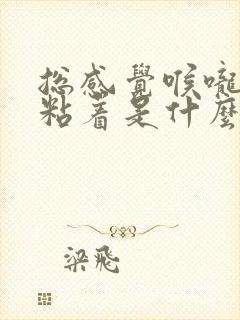 总感覺喉嚨
粘着是什麼
梁飛